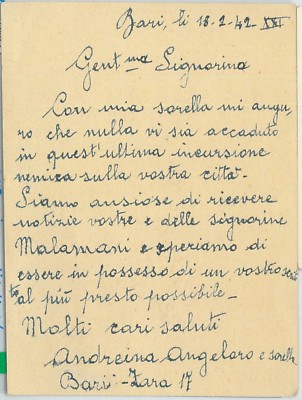 Bari, li 18-2-42-XXI
Gent ma Signorina
Con mia sorella mi augu,
ro che nulla vi sia accaduto
in quest'ultima incursione
nemica sulla vostra città-
Siamo ansiose di ricevere
notizie vostre e delle signorine
Malamani e speriamo di
essere in possesso di un vostro scrit
to al più presto possibile-
Molti cari saluti
Andreina Angelaro e sorella
Bari - Zara 17